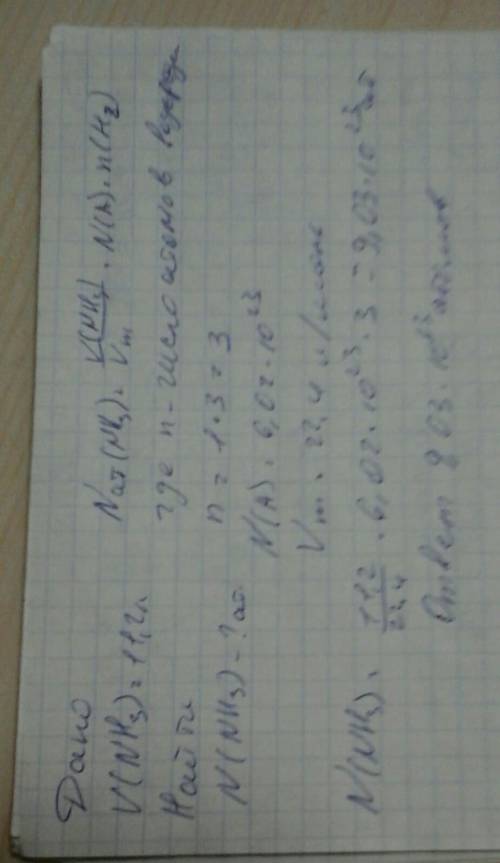 Дано
V(NH₃) = 11,2л
Найти
N(NH₃) - ? ат.
Nат(NH₃) = V(NH₃)/Vm · N(A) · n(H₂)
где n - число атомов водорода
n = 1 · 3 = 3
N(A) = 6,02 · 10²³
Vm = 22,4 л/моль
N(NH₃) = 11,2/22,4 · 6,02 · 10²³ · 3 = 9,03 · 10²³ ат
Ответ 9,03 · 10²³ атомов